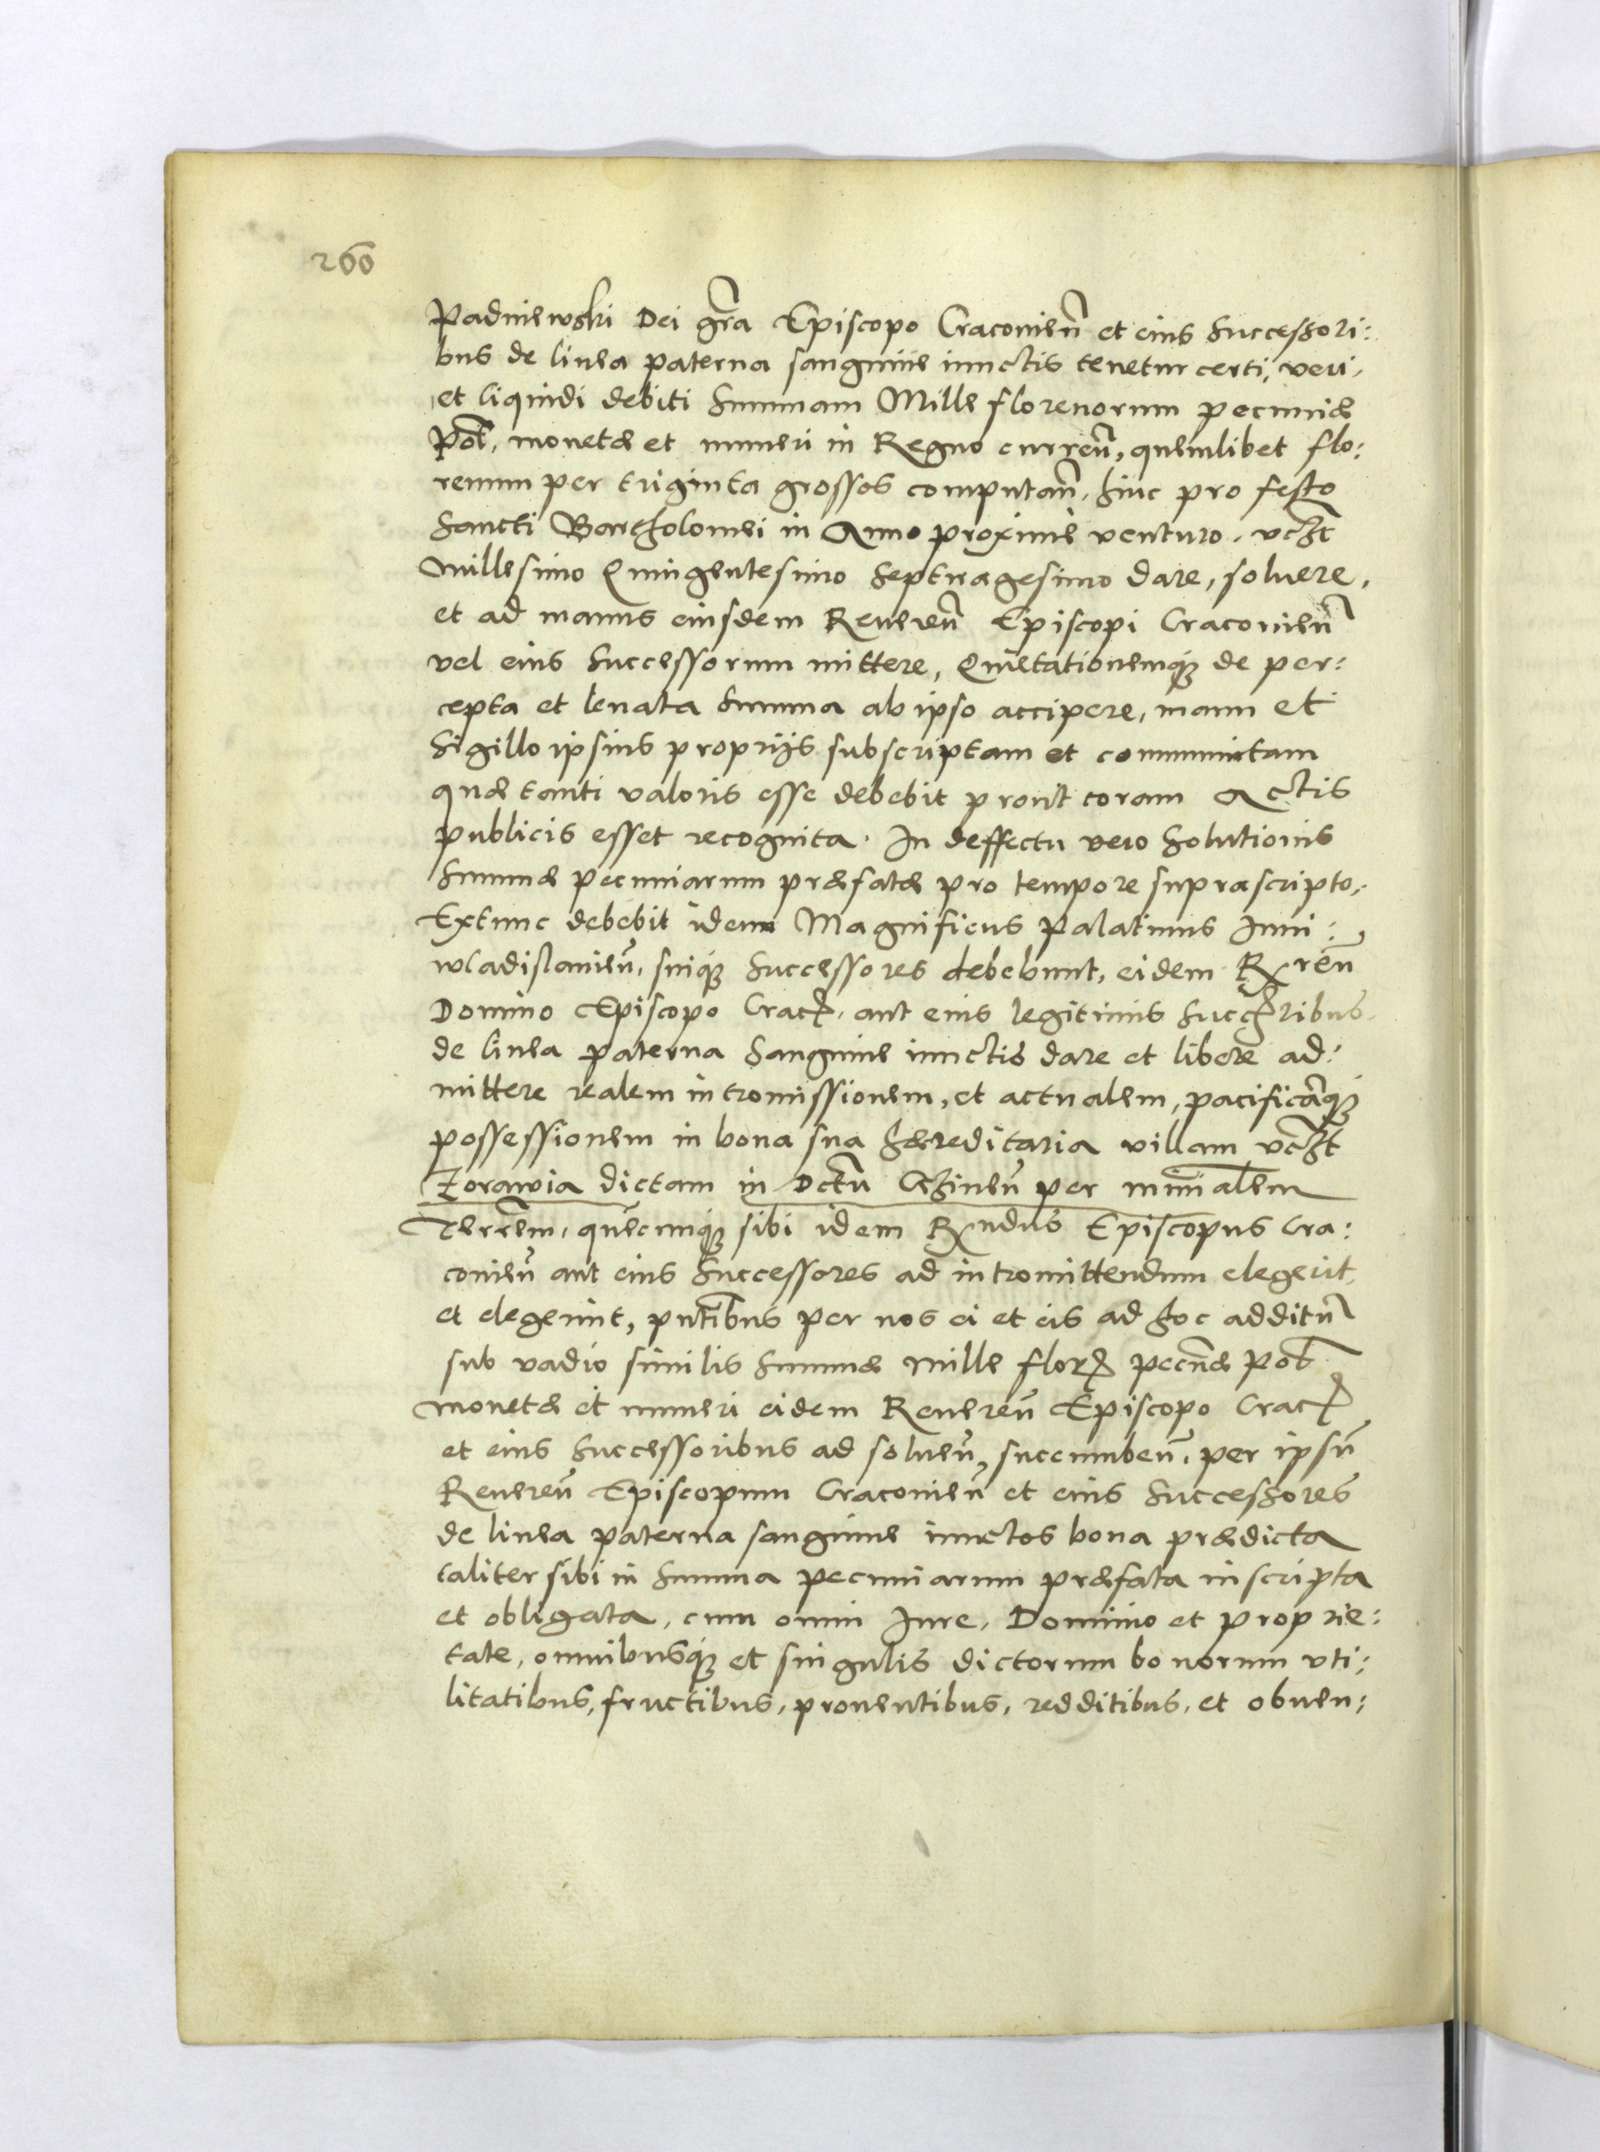 260
Padniewski Dei gr̃a Episcopo Cracovieñ et eius Successori:
bus de linea paterna sanguine iunctis tenetur certi, veri,
et liquidi debiti Summam Mille florenorum pecuniæ
Pol̃. monetæ et numeri in Regno curreñ, quemlibet flo:
renum per triginta grossos computañ, hinc pro festo
Sancti Bartholomei in Anno proxime venturo,
Millesimo Quingentesimo Septuagesimo dare, soluere,
et ad manus eiusdem Reuereñ Episcopi Cracovieñ
vel eius Successorum mittere, Quietationemq́ de per:
cepta et leuata Summa ab ipso accipere, manu et
Sigillo ipsius proprijs subscriptam et communitam
quæ tanti valoris esse debebit prout coram Actis
publicis esset recognita. In deffectu vero Solutionis
Summæ pecuniarum præfatæ pro tempore suprascripto,
Extunc debebit idem Magnificus Palatinus Iuni:
wladislavieñ, suiq́ Successores debebunt, eidem Rreñ
Domino Episcopo Crac. aut eius legitimis Succribus
de linea paterna Sanguine iunctis dare et libere ad:
mittere realem intromissionem, et actualem, pacificamq́
possessionem in bona sua hæreditaria villam
Zorawia dictam in Dctu per mĩnĩalem
Terrem, quemcunq́ sibi idem Rndus Episcopus Cra:
covieñ aut eius Successores ad intromittendum elegerit,
et elegerint, pñtibus per nos ei et eis ad hoc additũ
sub vadio similis Summæ Mille flor. pecñæ Pol̃.
monetæ et numeri eidem Reuereñ Episcopo Crac.
et eius Successoribus ad solueñ, succumbeñ, per ipsũ
Reuereñ Episcopum Cracovieñ et eius Successores
de linea paterna sanguine iunctos bona prædicta
taliter sibi in Summa pecuniarum præfata inscripta
et obligata, cum omni Iure, Dominio et proprie:
tate, omnibusq́ et singulis dictorum bonorum vti:
litatibus, fructibus, prouentibus, redditibus, et obuen: